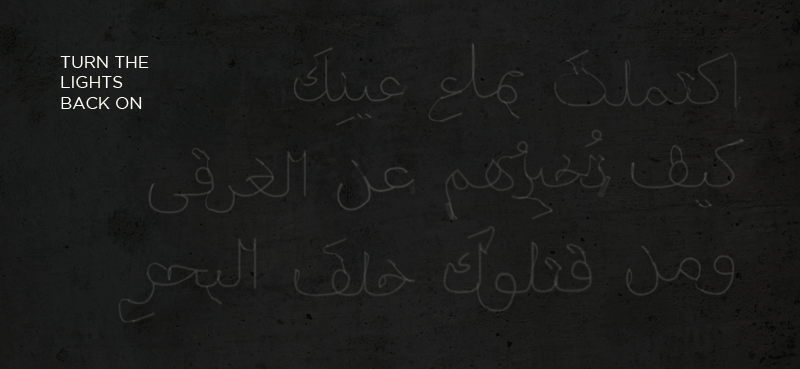 TURN THE
LIGHTS
BACK ON
اكتملتَ
كيف تُخبرُهم عن الغرقى
ومن قتلوكَ خلفَ البحرِ